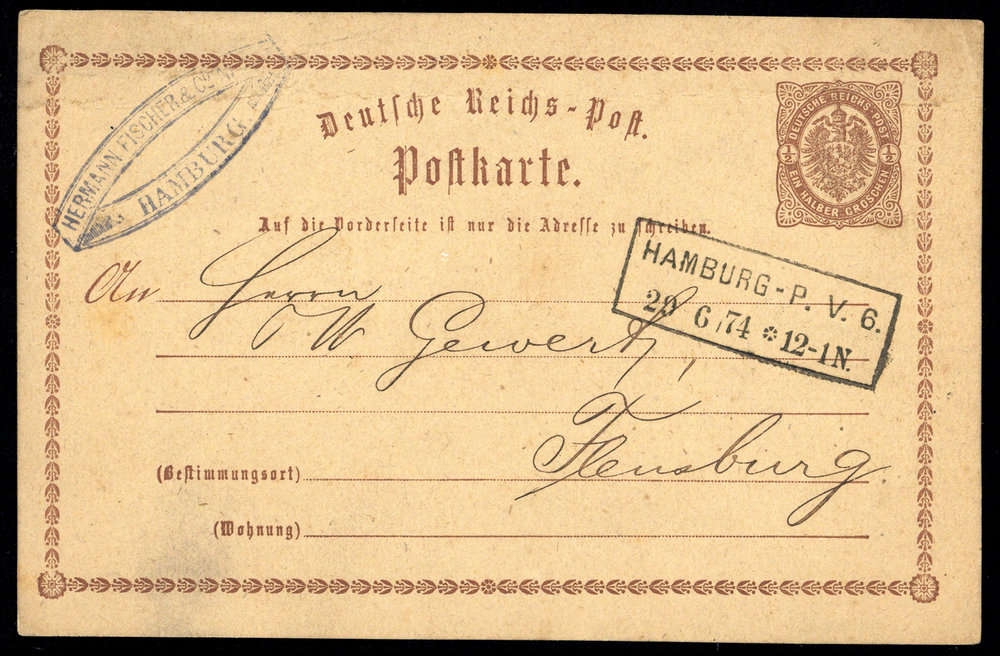 HERMANN FISCHER & Co
HAMBURG.
Deutsche Reichs-Post.
Postkarte.
DEUTSCHE REICHS-POST
½ ½
EIN HALBER GROSCHEN
Auf die Vorderseite ist nur die Adresse zu schreiben.
HAMBURG-P. V. 6.
29 6 74 * 12-1N.
An Herrn
W Gewert,
Flensburg.
(Bestimmungsort)
(Wohnung)